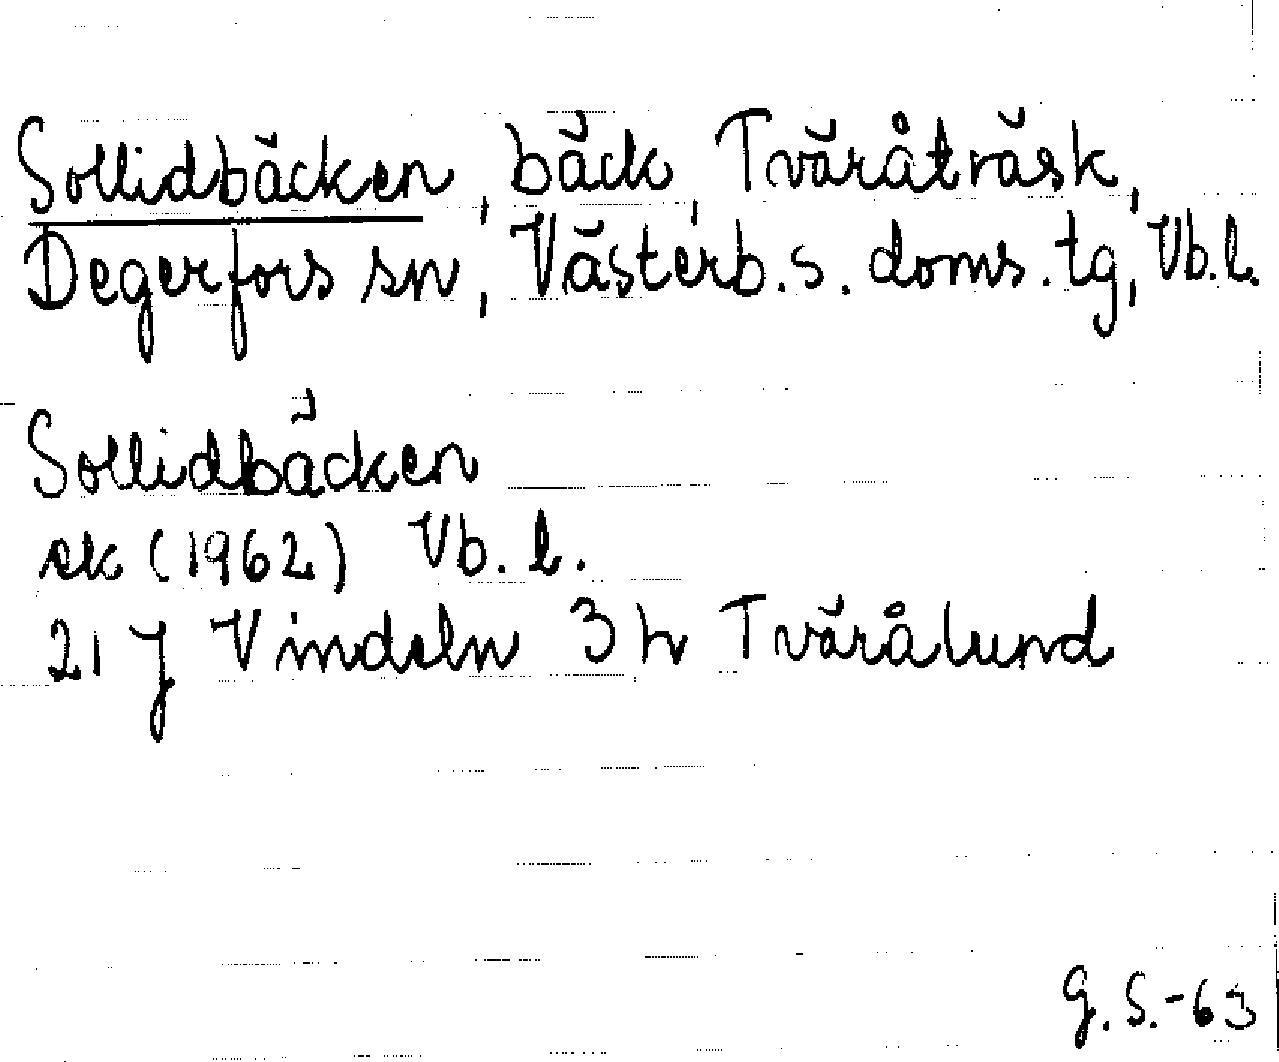 Sollidbäcken, bäck, Tväråträsk,
Degerfors sn, Västerb. s. doms. tg, Vb. l.
Sollidbäcken
sk (1962) Vb. l.
21 J Vindeln 3 h Tvärålund
G. S. - 63